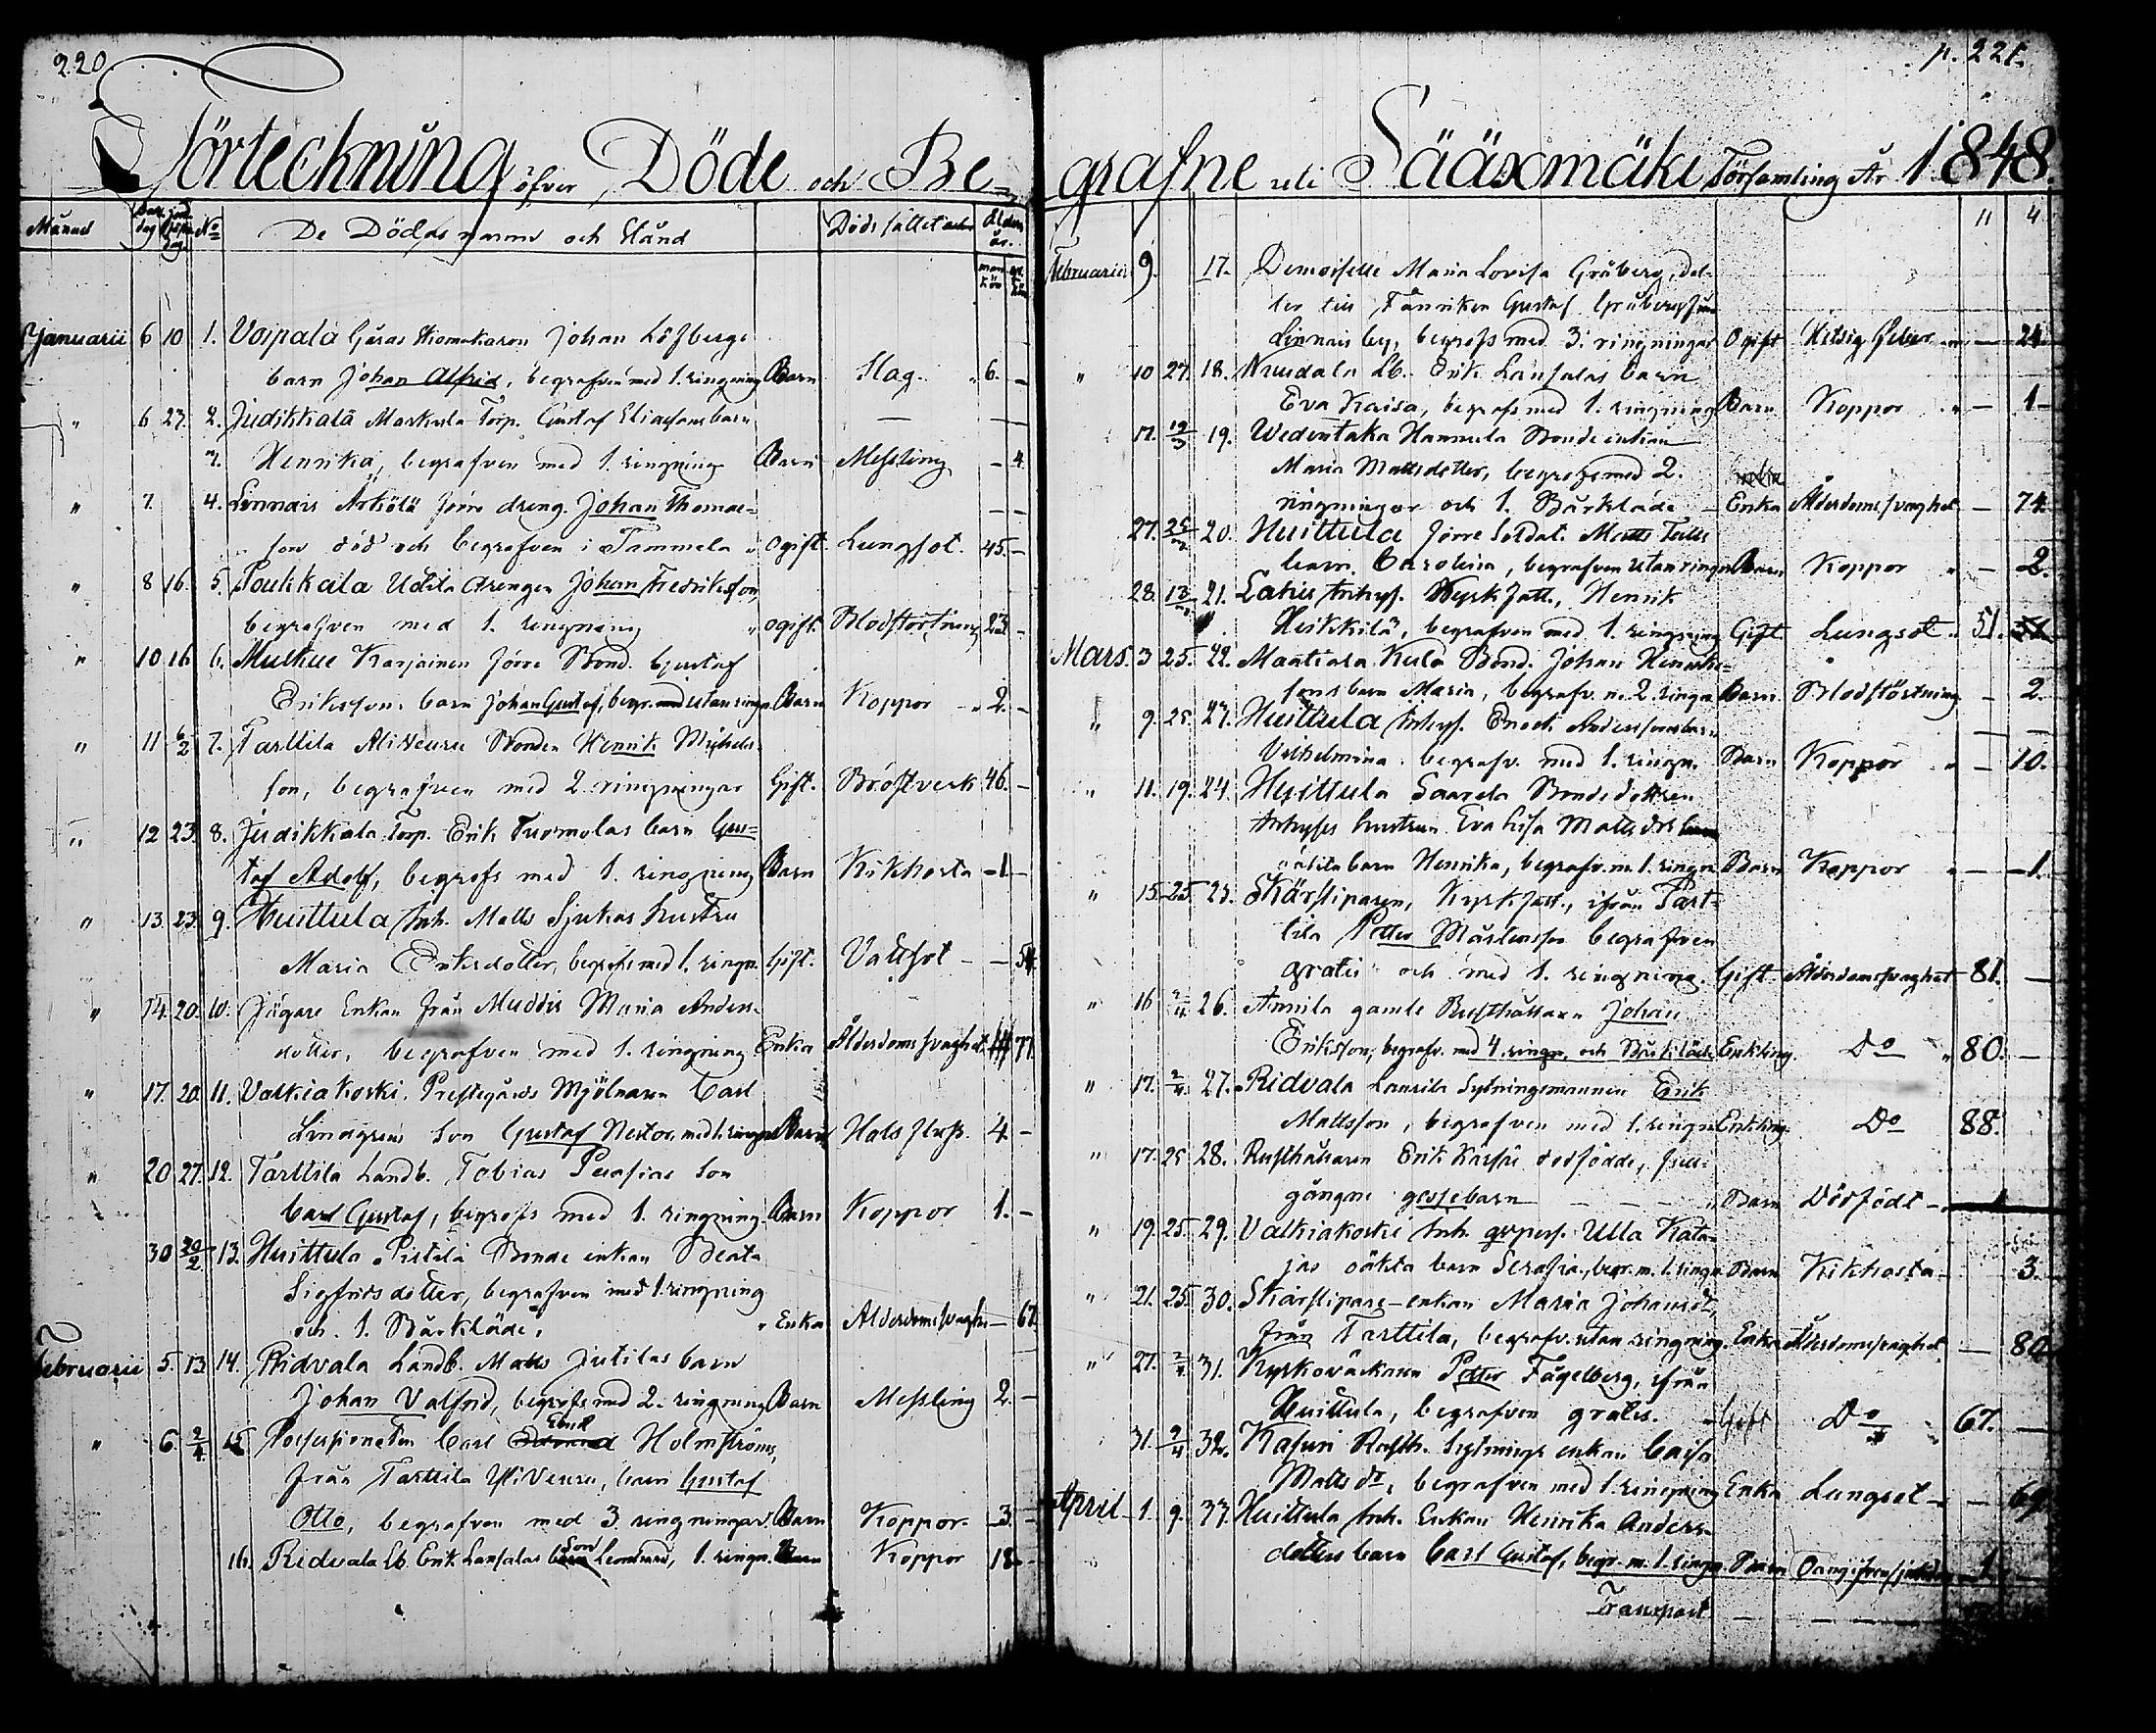 220.
Förteckning öfver Döde och Be=
Månad
dag
No
De Dödas namn och Stånd
Dödssättet
Ålder
år.
Januarii 6 10 1. Voipala Gårds Johan Löfbergs
barn Johan Alfred, begrafven med 1. ringning Barn Slag. 6. –
" 6 23. 2. Judikkala Markula Torp. Gustaf Eliassons barn
Henrika, begrafven med 1. ringning Barn Messling – 4.
" 7. 4. Lennais Arkiölä förre dreng Johan Thomas=
son död och begrafven i Tammela Ogift. Lungsot. 45. –
" 8 16. 5. Poukkala Uotila drengen Johan Fredriksson,
begrafven med 1. ringning ogift. Blodstörtning 23. –
" 10 16 6. Muttue Karjainen förre Bond. Gustaf
Erikssons barn Johan Gustaf, begr. med utan ringn. Barn Koppor – 2. –
" 11 6/2 7. Tarttila Aliveuru Bonden Henrik Michels-
son, begrafven med 2 ringningar Gift. Bröstverk 46. –
" 12 23. 8. Judikkala Torp. Erik Tuomolas barn Gus=
taf Adolf, begrafs med 1. ringning Barn Kikhosta – 1 –
" 13. 23. 9. Huittula Inh. Matts Sjukas hustru
Maria Eriksdotter, begrafs med 1. ringn. Gift. Vattsot – – 54.
" 14. 20. 10. Jägare Enkan från Muddis Maria Anders-
dotter, begrafven med 1. ringning Enka Ålderdomssvaghet 77.
" 17. 20. 11. Valkiakoski, Prestegårds Mjölnaren Carl
Lindgrens Son Gustaf Nestor, med 1. ringn. Barn Halsfluss. 4. –
" 20 27. 12. Tarttila Landb. Tobias Perafias Son
Carl Gustaf, begrafs med 1. ringning. Barn Koppor 1. –
30 20/2 13. Huittula Pietilä Bonde enkan Beata
Sigfridsdotter, begrafven med 1. ringning
och 1. Bårkläde. Enka Ålderdomssvaghet – 67.
Februarii 5. 13. 14. Ridvala Landb. Matts Jutilas barn
Johan Valfrid, begrafs med 2. ringning Barn Messling 2. –
" 6. 2/4. 15. Possessionaten Carl Holmströms,
från Tarttila Yliveuru, barn Gustaf
Otto, begrafven med 3. ringningar. Barn Koppor – 3. –
16. Ridvala Lb. Erik Lansalas Son Leonard, 1. ringn. Barn Koppor 18 –
p. 221.
grafne uti Sääxmäki Församling År 1848.
11 4
Februarii 9. 17. Demoiselle Maria Lovisa Gråberg, dot-
ter till Fänriken Gustaf Gråberg från
Lennais by, begrafs med 3. ringningar Ogift Hetsig feber – 24.
" 10 27. 18. Nuudala Lb. Erik Lansalas barn
Eva Kaisa, begrafs med 1. ringning Barn Koppor " – 1 –
17. 19/3 19. Wedentaka Hannula Bonde enkan
Maria Mattsdotter, begrafs med 2.
ringningar och 1. Bårkläde – Enka Ålderdomssvaghet – 74.
27. 20. Huittula förre Soldat. Matts Falls
barn Carolina, begrafven utan ringn. Barn Koppor " – 2.
28. 21. Lahis Inhys. Kyrkfatt., Henrik
Heikkilä, begrafven med 1. ringning Gift. Lungsot 51.
Mars. 3 25. 22. Maatiara Kulå Bond. Johan Henriks=
sons barn Maria, begrafv. m. 2. ringn Barn Blodstörtning – 2.
" 9. 25. 23. Huittula Inhys. Enoch Anderssons barn
Vilhelmina, begrafv. med 1. ringn. Barn Koppor " – 10.
" 11. 19. 24. Huittula Saarela Bondedottren
Inhyses hustrun Eva Lisa Mattsdrs
oäkta barn Henrika, begrafv. m. 1. ringn Barn Koppor " – 1.
" 15. 25. 25. Skärsliparen, Kyrkfatt., ifrån Tart-
tila Petter Mårtensson begrafven
gratis och med 1. ringning. Gift Ålderdomssvaghet 81. –
" 16 2/4 26. Annila gamle Rusthållaren Johan
Eriksson, begrafv. med 4 ringn. och Bårkläde Enkling. Do " 80. –
" 17. 2/4. 27. Ridvala Laurila Sytningsmannen Erik
Mattsson, begrafven med 1. ringn Enkling. Do 88.
" 17. 25 28. Rusthållaren Erik Karsus dödfödde, full-
gångne gossebarn – – – " Barn Dödfödt –
" 19. 25. 29. Valkiakoski Inh. qvpers. Ulla Kata-
jas oäkta barn Serafia, begr. m. 1. ringn Barn Kikhosta – 3.
" 21. 25. 30. Skärslipare-enkan Maria Johansdr,
från Tarttila, begrafv. utan ringning. Enka Ålderdomssvaghet – 80
" 27. 2/4 31. Kyrkoväcktaren Petter Fågelberg, ifrån
Huittula, begrafven gratis. – Gift Do 67. –
31. 2/4 32. Kasuri Rusth. Sytnings enkan Caisa
Matts dr, begrafven med 1. ringning Enka Lungsot – – 69.
April – 1. 9. 33. Huittula Inh. Enkan Henrika Anders-
dotters barn Carl Gustaf, begr. m. 1. ringn. Barn 1.
Transport. – – – –